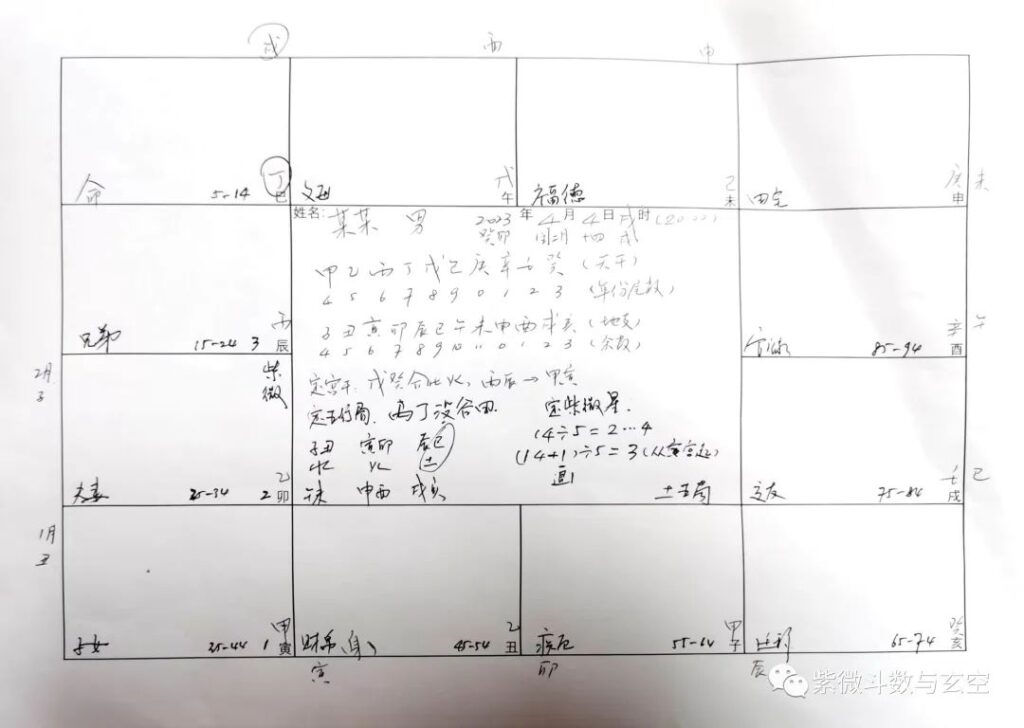 戌 酉 申
命 5-14 丁巳
父母 戊午
福德 己未
田宅 庚申 未
姓名: 某某 男 2023年4月4日戌时(20:00)
癸卯 闰二月 十四 戌
甲乙丙丁戊己庚辛壬癸 (天干)
4 5 6 7 8 9 0 1 2 3 (年份尾数)
子丑寅卯辰巳午未申酉戌亥 (地支)
4 5 6 7 8 9 10 11 0 1 2 3 (余数)
兄弟 15-24 3 丙辰
85-94 辛酉 午
定宫干: 戊癸合化火, 丙辰→甲寅
定五行局: 定紫微星.
14÷5=2…4
子丑 寅卯 辰巳
(14+1)÷5=3(从寅宫起)
水 火 土
午未 申酉 戌亥 土五局
2月 子
紫微
夫妻 25-34 2 乙卯
交友 75-84 壬戌 巳
1月 丑
子女 35-44 1 甲寅
财帛(身) 45-54 乙丑
疾厄 55-64 甲子
迁移 65-74 癸亥
寅 卯 辰
紫微斗数与玄空